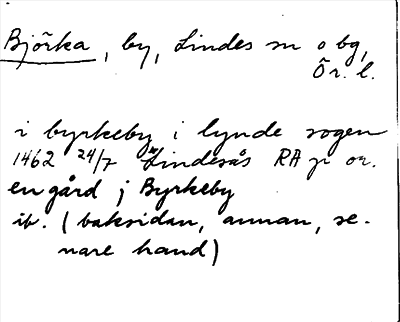 Björka, by, Lindes sn o bg,
Ör. l.
i byrkeby i lynde sogen
1462 24/7 Lindesås RA p or.
en gård j Byrkeby
ib. (baksidan, annan, se-
nare hand)